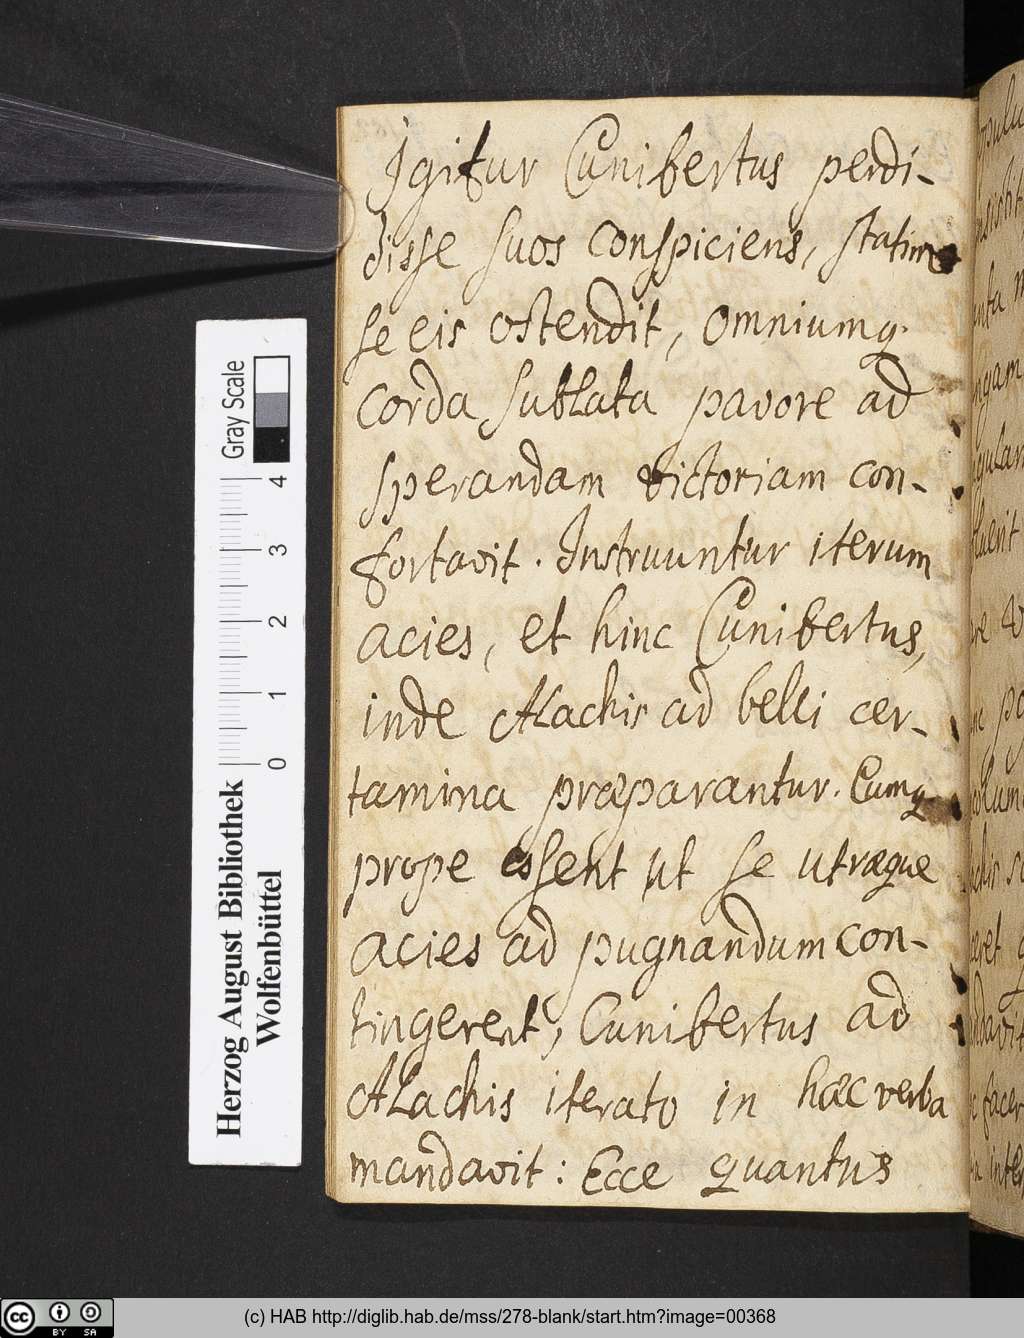 Igitur Cunibertus perdi-
disse suos conspiciens, statim
se eis ostendit, omniumq.
corda sublata pavore ad
sperandam victoriam con-
fortavit. Instruuntur iterum
acies, et hinc Cunibertus,
inde Alachis ad belli cer-
tamina præparantur. Cumq
prope essent ut se utræque
acies ad pugnandum con-
tingerent, Cunibertus ad
Alachis iterato in hæc verba
mandavit: Ecce quantus
Gray Scale
4
3
2
1
0
Herzog August Bibliothek
Wolfenbüttel
cc BY SA
(c) HAB http://diglib.hab.de/mss/278-blank/start.htm?image=00368